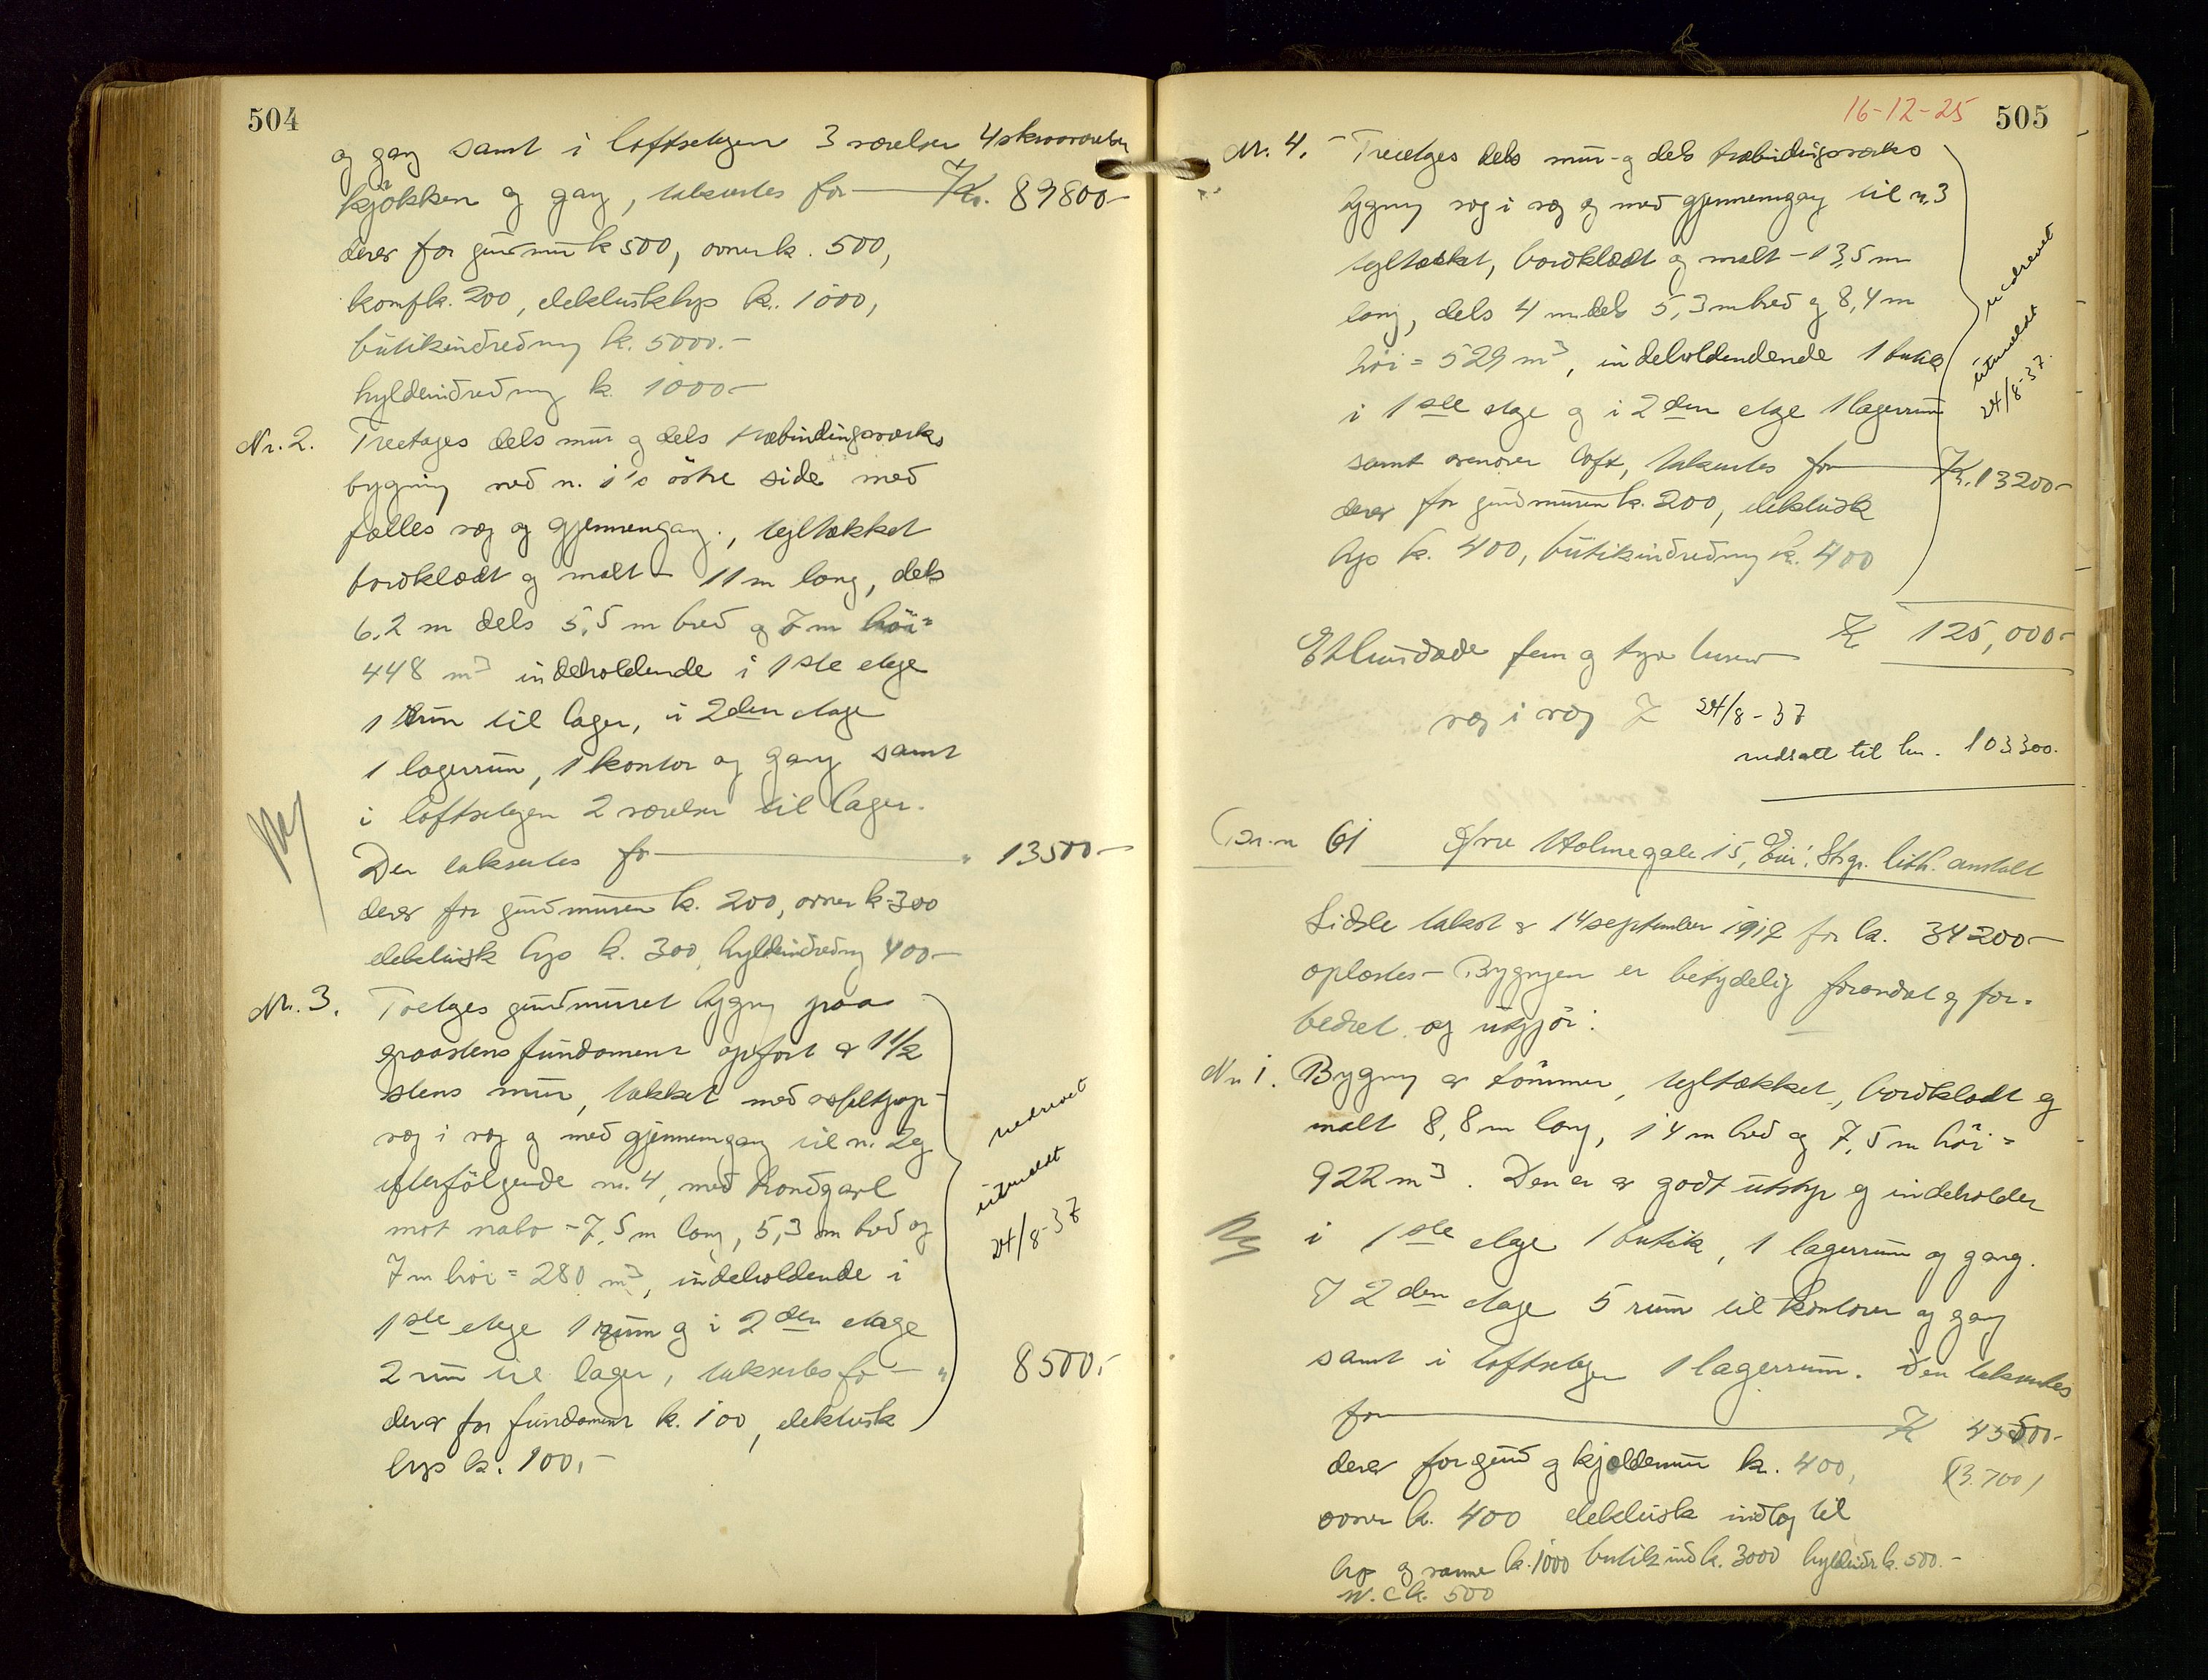 504
og gang samt i loftsetagen 3 værelser 4 skraaværelser
kjøkken og gang, takseres for — Kr. 89800-
derav for grundmur k 500, ovner k. 500,
komf k. 200, elektrisk lys k. 1000,
butikindredning k. 5000.-
hyldeindredning k. 1000-
Nr. 2. Treetages dels mur og dels træbindingsverks
bygning ved n. 1's østre side med
fælles væg og gjennemgang, tegltækket
bordklædt og malt - 11 m lang, dels
6,2 m dels 5,5 m bred og 7 m høi =
448 m³ indeholdende i 1ste etage
1 rum til lager, i 2den etage
1 lagerrum, 1 kontor og gang samt
i loftsetagen 2 værelser til lager.
Den takseres for — " 13500-
derav for grundmuren k. 200, ovner k. 300
elektrisk lys k. 300, hyldeindredning 400-
Nr. 3. Toetages grundmuret bygning paa
graastens fundament opført av 1 1/2
stens mur, tækket med asfaltpap -
væg i væg og med gjennemgang til n. 2 og
efterfølgende nr. 4, med brandgavl
mot nabo - 7,5 m lang, 5,3 m bred og
7 m høi = 280 m³, indeholdende i
1ste etage 1 rum og i 2den etage
2 rum til lager, takseres for — " 8500.-
derav for fundament k. 100, elektrisk
lys k. 100,-
nedrevet
utmeldt
24/8-37
Ny
16-12-25 505
Nr. 4. - Treetages dels mur- og dels træbindingsverks
bygning væg i væg og med gjennemgang til n. 3
tegltækket, bordklædt og malt - 13,5 m
lang, dels 4 m dels 5,3 m bred og 8,4 m
høi = 529 m³, indeholdendende 1 butik
i 1ste etage og i 2den etage 1 lagerrum
samt ovenover loft, takseres for — Kr. 13200-
derav for grundmuren k. 200, elektrisk
lys k. 400, butikindredning k. 400
nedrevet
utmeldt
24/8-37.
Kr 125,000-
Ethundrede fem og tyve tusen
væg i væg 24/8-37
nedsatt til kr. 103300.
Br. n 61 Øvre Holmegate 15, Eier: Stvgr. lith. anstalt
Sidste takst av 14 september 1917 for k. 34200-
oplæstes - Bygningen er betydelig forandret og for-
bedret og utgjør:
Nr 1. Bygning av tømmer, tegltækket, bordklædt og
malt 8,8 m lang, 14 m bred og 7,5 m høi =
922 m³. Den er av godt utstyr og indeholder
Ny i 1ste etage 1 butik, 1 lagerrum og gang.
I 2den etage 5 rum til kontorer og gang
samt i loftsetagen 1 lagerrum. Den takseres
for — Kr 43500-
derav for grund og kjældermur k. 400, (3.700)
ovner k. 400 elektrisk indlæg til
lys og varme k. 1000 butikind k. 3000 hyldeindr k. 500.-
W.C k. 500